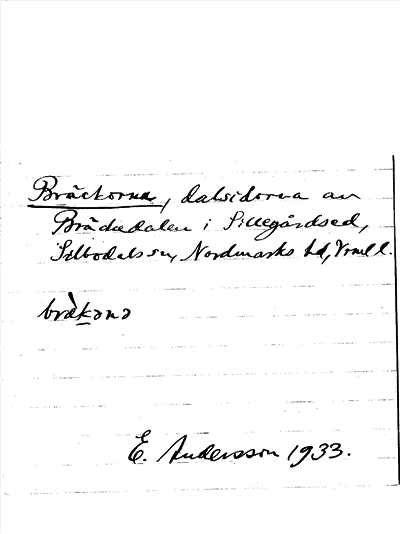 Bräckorna, dalsidorna av
Brädedalen i Sillegårdsed,
Silbodals sn, Nordmarks hd, Vrml l.
bräkənə
E. Andersson 1933.